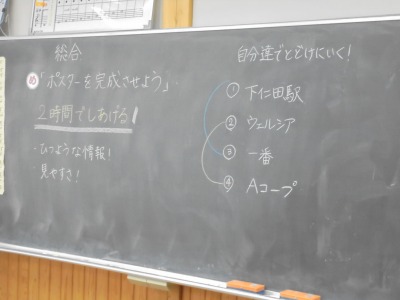 総合
め「ポスターを完成させよう」
2時間でしあげる!
・ひつような情報!
・見やすさ!
自分達でとどけにいく!
① 下仁田駅
② ウェルシア
③ 一番
④ Aコープ